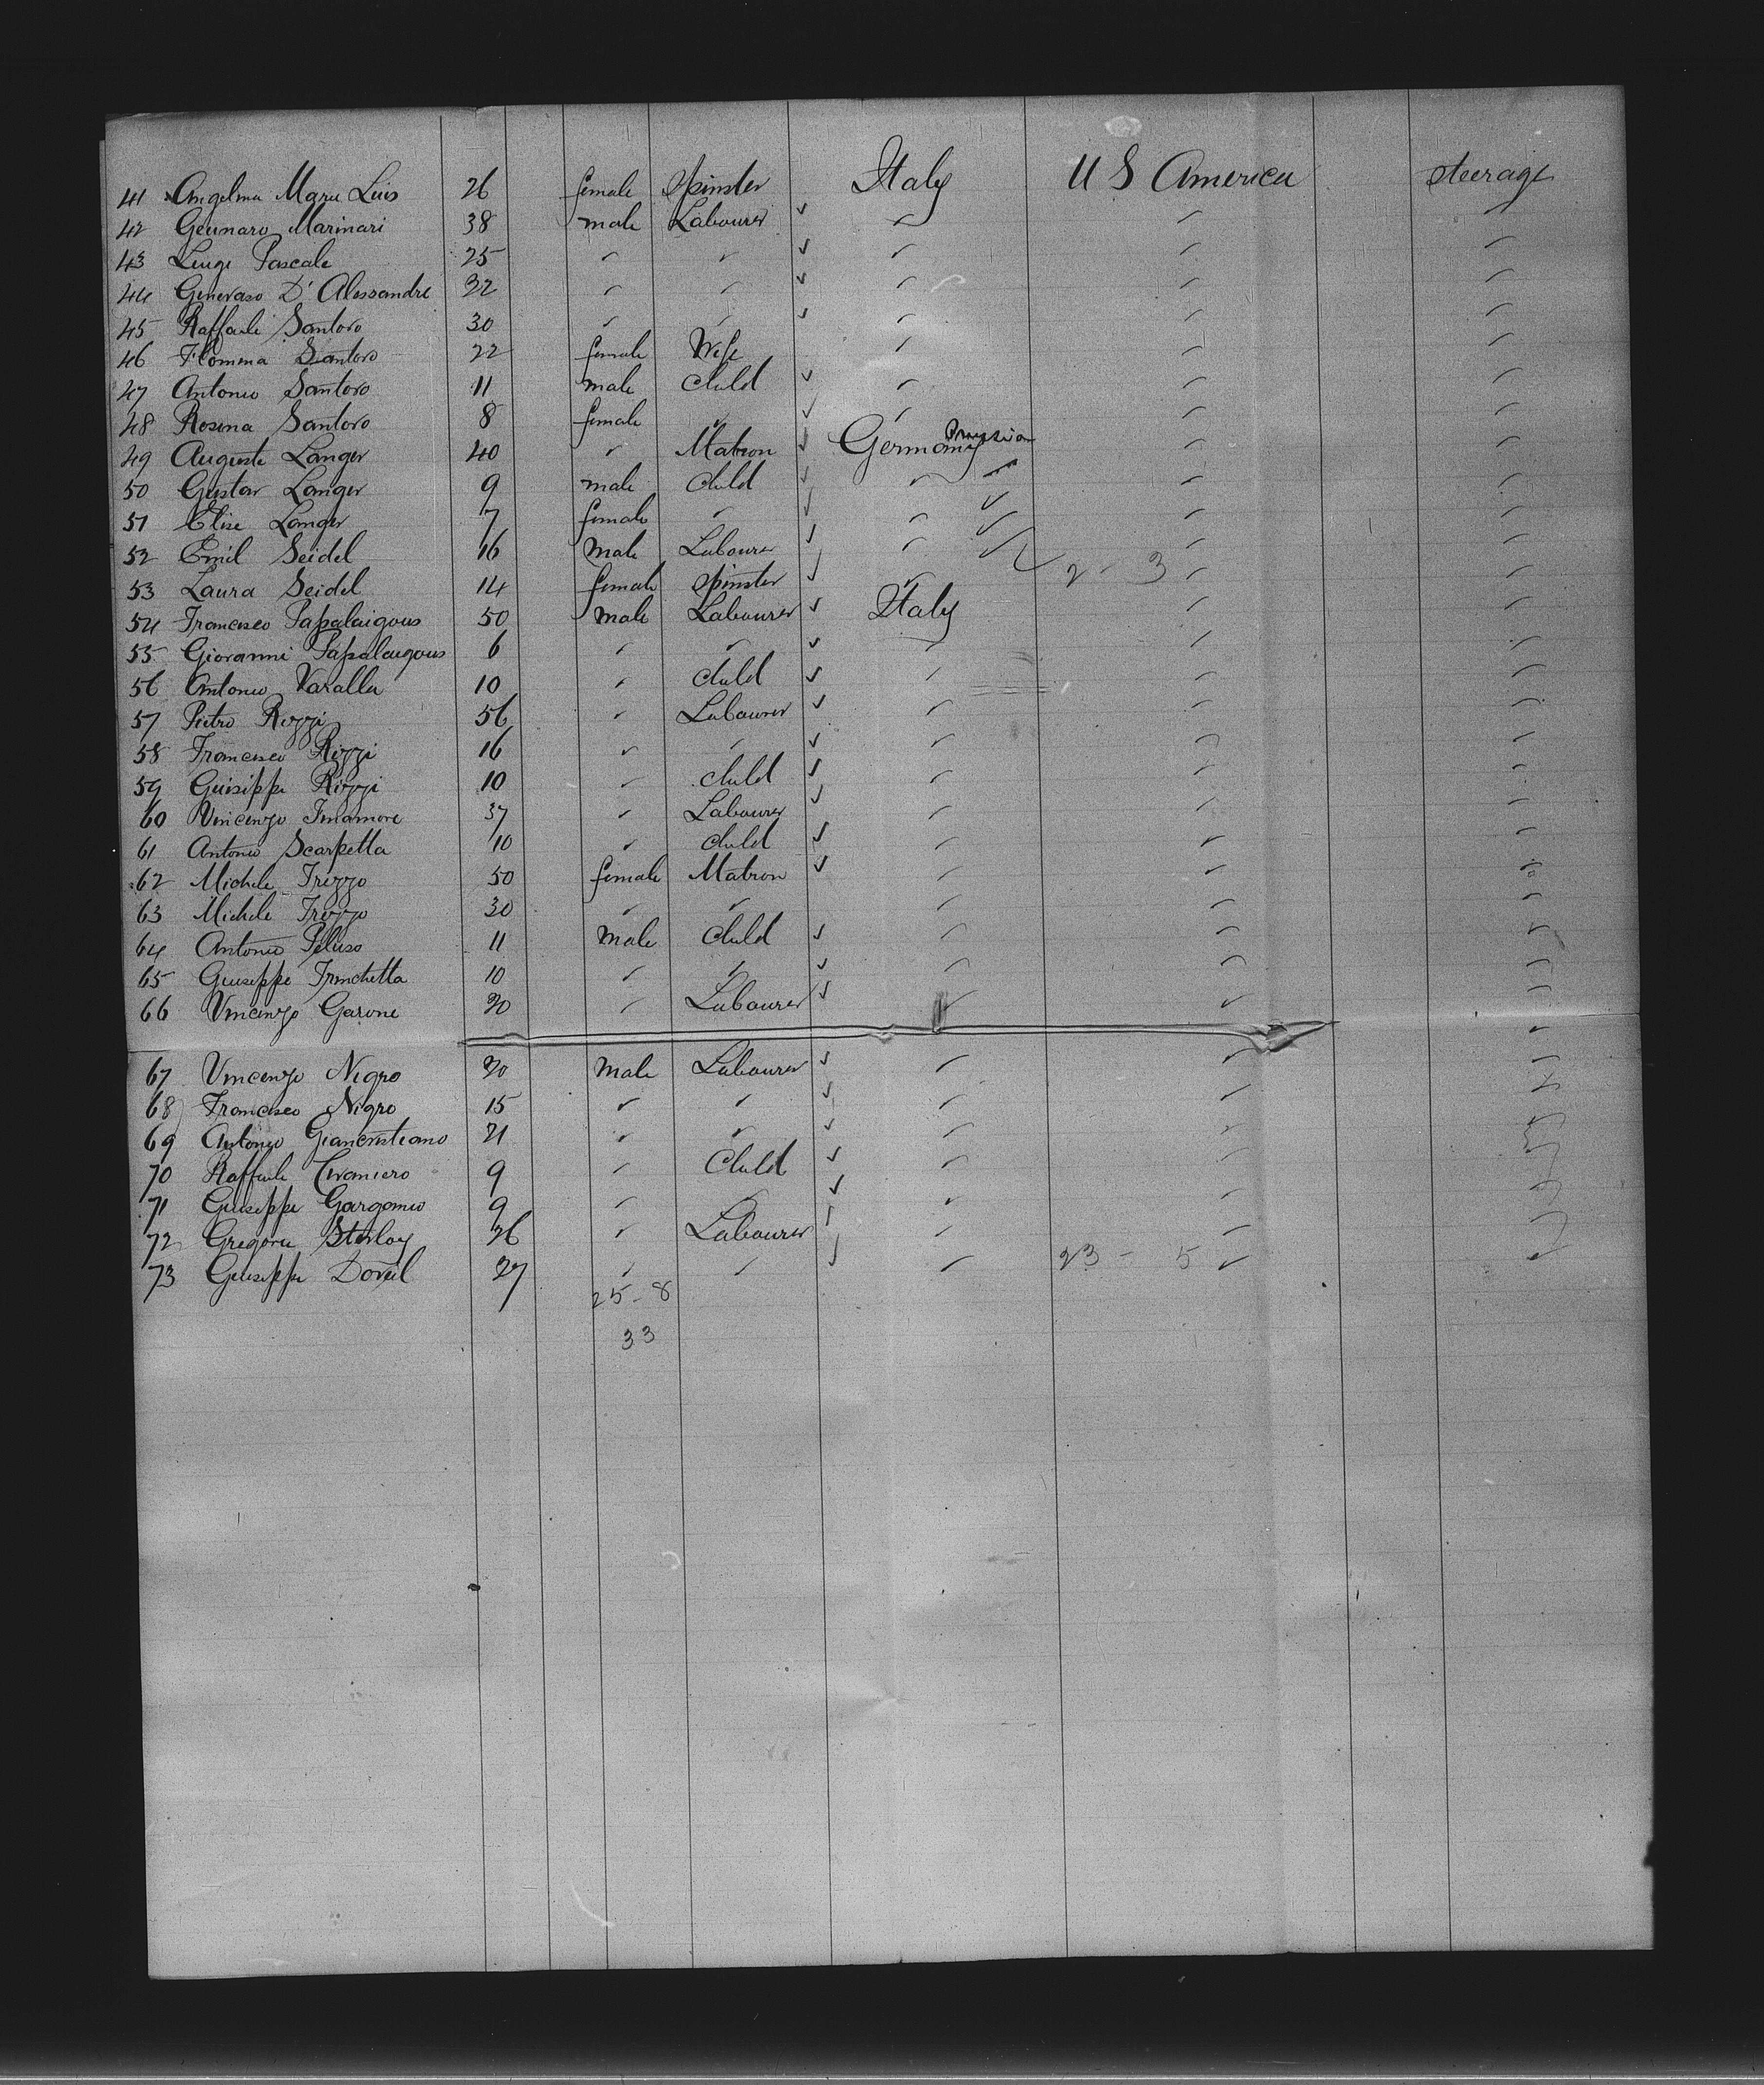 41 Angelina Maria Luis 26 female Spinster Italy U S America steerage
42 Gennaro Marinari 38 male Labourer ✓ " " "
43 Luigi Pascale 25 " " ✓ " " "
44 Generaso D'Alessandre 32 " " ✓ " " "
45 Raffaele Santoro 30 " " ✓ " " "
46 Filomena Santoro 22 female Wife " " "
47 Antonio Santoro 11 male Child ✓ " " "
48 Rosina Santoro 8 female " ✓ " " "
49 Auguste Langer 40 " Matron ✓ Germany Prussian " "
50 Gustav Langer 9 male Child ✓ " " "
51 Elise Langer 7 female " ✓ " " "
52 Emil Seidel 16 Male Labourer ✓ " " "
53 Laura Seidel 14 female Spinster ✓ " 2 - 3 " "
54 Francesco Papalaigous 50 male Labourer ✓ Italy " "
55 Giovanni Papalaigous 6 " " ✓ " " "
56 Antonio Varalla 10 " Child ✓ " " "
57 Pietro Rizzi 56 " Labourer ✓ " " "
58 Francesco Rizzi 16 " " ✓ " " "
59 Guiseppe Rizzi 10 " Child ✓ " " "
60 Vincenzo Inamore 37 " Labourer ✓ " " "
61 Antonio Scarpetta 10 " Child ✓ " " "
62 Michele Trezzo 50 female Matron ✓ " " "
63 Michele Trezzo 30 " " " " "
64 Antonio Peluso 11 Male Child ✓ " " "
65 Guiseppe Franchetta 10 " " ✓ " " "
66 Vincenzo Garone 20 " Labourer ✓ " " "
67 Vincenzo Nigro 20 Male Labourer ✓ " " "
68 Francisco Nigro 15 " " ✓ " " "
69 Antonyo Giancristiano 21 " " ✓ " " "
70 Raffaele 9 " Child ✓ " " "
71 Guiseppe Gargomio 9 " " ✓ " " "
72 Gregorie Sterloy 26 " Labourer ✓ " " "
73 Guiseppe 27 " " ✓ " 23 - 5 " "
25 - 8
33